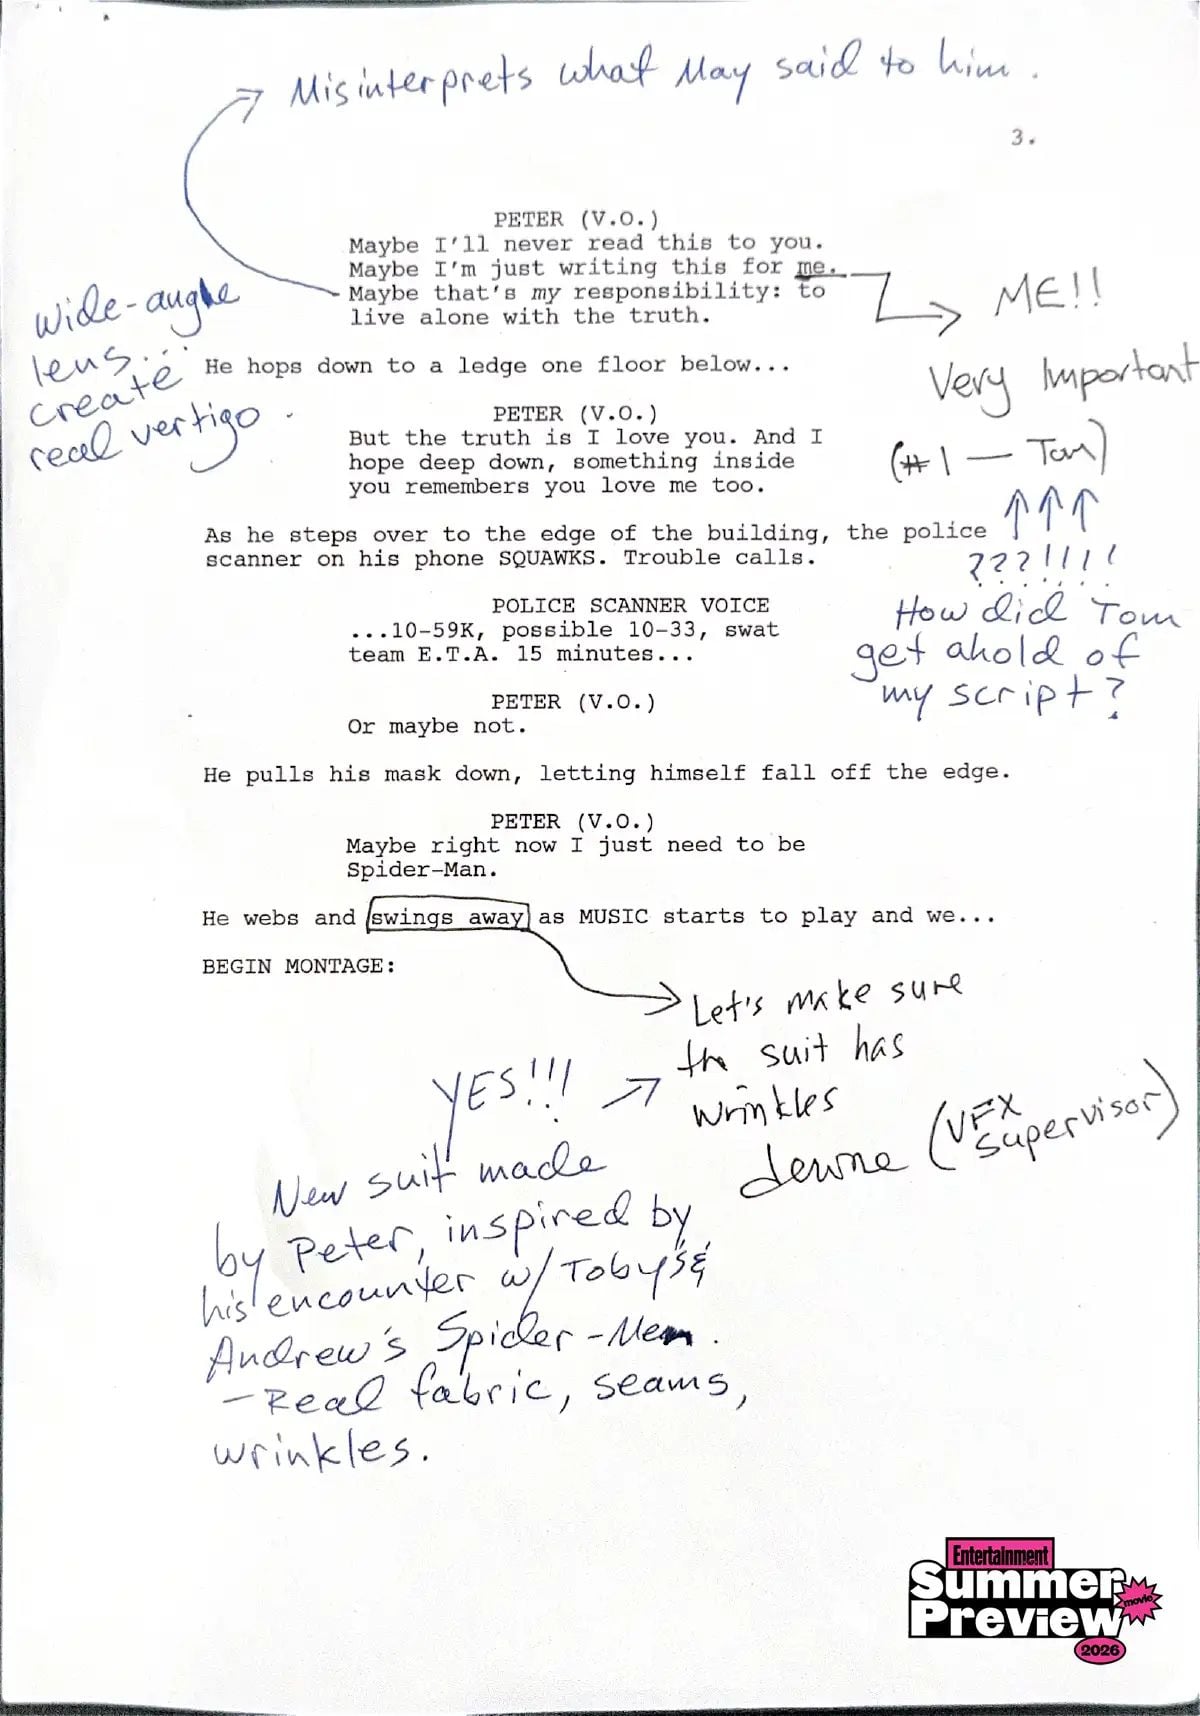 Misinterprets what May said to him.
3.
PETER (V.O.)
Maybe I'll never read this to you.
Maybe I'm just writing this for me.
Maybe that's my responsibility: to
live alone with the truth.
wide-angle
lens...
create
real vertigo.
ME!!
Very Important
(#1 — Tom)
???!!!!
How did Tom
get ahold of
my script?
He hops down to a ledge one floor below...
PETER (V.O.)
But the truth is I love you. And I
hope deep down, something inside
you remembers you love me too.
As he steps over to the edge of the building, the police
scanner on his phone SQUAWKS. Trouble calls.
POLICE SCANNER VOICE
...10-59K, possible 10-33, swat
team E.T.A. 15 minutes...
PETER (V.O.)
Or maybe not.
He pulls his mask down, letting himself fall off the edge.
PETER (V.O.)
Maybe right now I just need to be
Spider-Man.
He webs and swings away as MUSIC starts to play and we...
BEGIN MONTAGE:
Let's make sure
the suit has
wrinkles
(VFX
supervisor)
YES!!!
New suit made
by Peter, inspired by
his encounter w/ Toby's &
Andrew's Spider-Men.
- Real fabric, seams,
wrinkles.
Entertainment
Summer
movie
Preview
2026